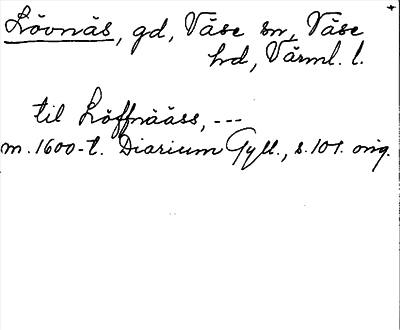 Lövnäs, gd, Väse sn, Väse
hd, Värml. l.
til Löffnääss, ---
m. 1600-t. Diarium Gyll., s. 101. orig.